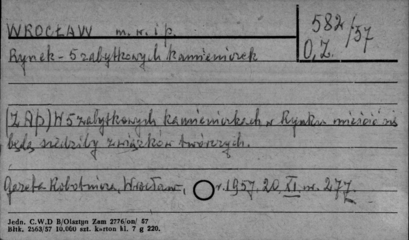 WROCŁAW m. w. i p.
582/57
O,Z.
Rynek - 5 zabytkowych kamieniczek
(ZAP) W 5 zabytkowych kamieniczkach w Rynku mieścić się
będą siedziby związków twórczych.
Gazeta Robotnicza, Wrocław, r. 1957, 20. XI. nr. 277
Jedn. C.W.D B/Olsztyn Zam 2776/on/ 57
Bltk. 2563/57 10.000 szt. karton kl. 7 g 220.